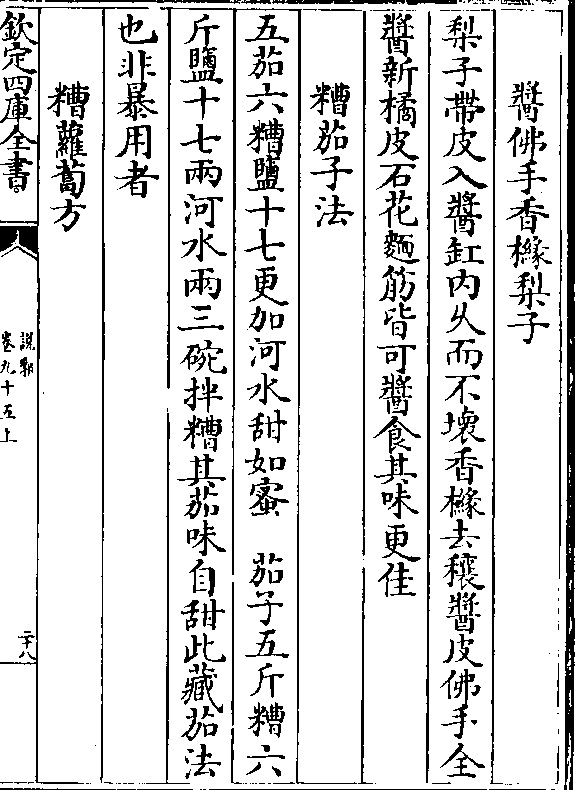 醬佛手香櫞梨子
梨子帶皮入醬缸内久而不壞香櫞去穰醬皮佛手全
醬新橘皮石花麵筋皆可醬食其味更佳
糟茄子法
五茄六糟鹽十七更加河水甜如蜜　茄子五斤糟六
斤鹽十七兩河水兩三碗拌糟其茄味自甜此藏茄法
也非暴用者
糟蘿蔔方
欽定四庫全書
説郛
卷九十五上
二十八